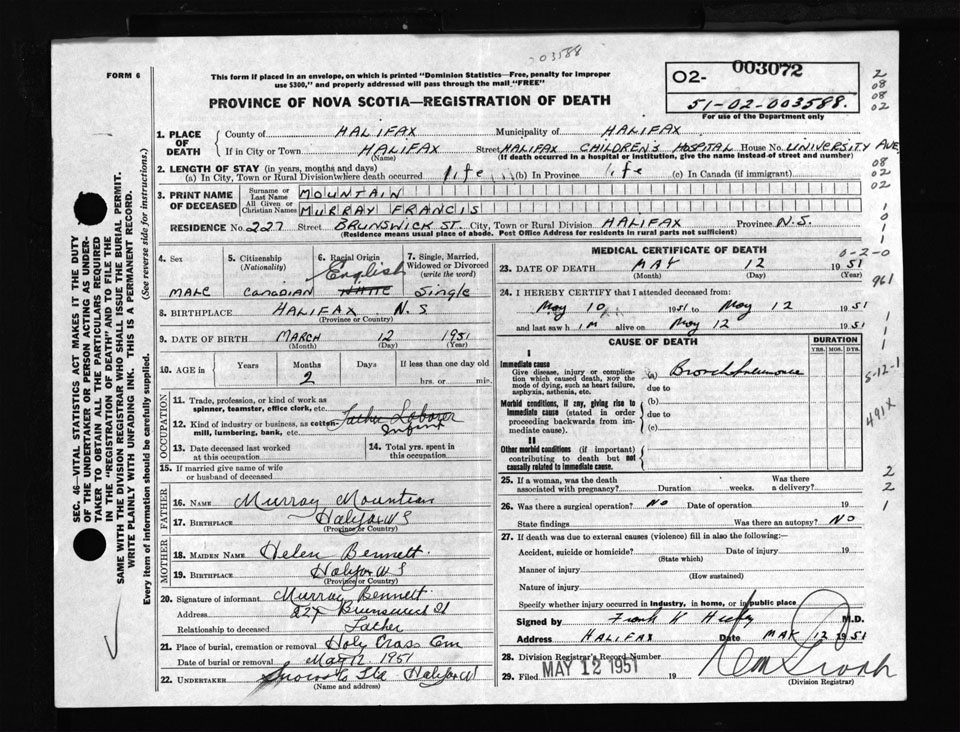 003588
FORM 6
This form if placed in an envelope, on which is printed "Dominion Statistics—Free, penalty for improper
use $300," and properly addressed will pass through the mail "FREE"
PROVINCE OF NOVA SCOTIA—REGISTRATION OF DEATH
O2- 003072
51-02-003588.
For use of the Department only
2
08
08
02
1. PLACE OF DEATH
County of HALIFAX Municipality of HALIFAX
If in City or Town HALIFAX Street HALIFAX CHILDREN'S HOSPITAL House No. UNIVERSITY AVE.
(Name) (If death occurred in a hospital or institution, give the name instead of street and number)
2. LENGTH OF STAY (in years, months and days)
(a) In City, Town or Rural Division where death occurred life (b) In Province life (c) In Canada (if immigrant)
08
02
02
3. PRINT NAME OF DECEASED
Surname or Last Name MOUNTAIN
All Given or Christian Names MURRAY FRANCIS
RESIDENCE No. 227 Street BRUNSWICK ST. City, Town or Rural Division HALIFAX Province N.S.
(Residence means usual place of abode. Post Office Address for residents in rural parts not sufficient)
1
0
1
1
0-2-0
961
4. Sex
MALE
5. Citizenship
(Nationality)
Canadian
6. Racial Origin
English
WHITE
7. Single, Married, Widowed or Divorced
(write the word)
Single
8. BIRTHPLACE HALIFAX N.S
(Province or Country)
9. DATE OF BIRTH MARCH 12 1951
(Month) (Day) (Year)
10. AGE in
Years Months Days If less than one day old
2
hrs. or min.
OCCUPATION
11. Trade, profession, or kind of work as
spinner, teamster, office clerk, etc.
12. Kind of industry or business, as cotton-
mill, lumbering, bank, etc.
Father Laborer
Infant
13. Date deceased last worked
at this occupation
14. Total yrs. spent in
this occupation
15. If married give name of wife
or husband of deceased
FATHER
16. NAME Murray Mountian
17. BIRTHPLACE Halifax N S
(Province or Country)
MOTHER
18. MAIDEN NAME Helen Bennett.
19. BIRTHPLACE Halifax N S
(Province or Country)
20. Signature of informant Murray Bennett
Address 227 Brunswick St
Relationship to deceased Father
21. Place of burial, cremation or removal Holy Cross Cem
Date of burial or removal May 12 1951
22. UNDERTAKER Snows Ltd Halifax
(Name and address)
MEDICAL CERTIFICATE OF DEATH
23. DATE OF DEATH MAY 12 1951
(Month) (Day) (Year)
24. I HEREBY CERTIFY that I attended deceased from:
May 10 1951 to May 12 1951
and last saw him alive on May 12 1951
CAUSE OF DEATH
DURATION
YRS. MOS. DYS.
I
Immediate cause
Give disease, injury or complica-
tion which caused death, NOT the
mode of dying, such as heart failure,
asphyxia, asthenia, etc.
(a) Bronchopneumonia
due to
Morbid conditions, if any, giving rise to
immediate cause (stated in order
proceeding backwards from im-
mediate cause).
(b)
due to
(c)
II
Other morbid conditions (if important)
contributing to death but not
causally related to immediate cause.
1
1
1
5-12-1
491X
2
2
1
25. If a woman, was the death
associated with pregnancy? Duration weeks. Was there
a delivery?
26. Was there a surgical operation? NO Date of operation 19
State findings Was there an autopsy? NO
27. If death was due to external causes (violence) fill in also the following:—
Accident, suicide or homicide? Date of injury 19
(State which)
Manner of injury
(How sustained)
Nature of injury
Specify whether injury occurred in industry, in home, or in public place
Signed by Frank K M.D.
Address HALIFAX Date MAY 12 1951
28. Division Registrar's Record Number
29. Filed MAY 12 1951 19
(Division Registrar)
SEC. 46—VITAL STATISTICS ACT MAKES IT THE DUTY
OF THE UNDERTAKER OR PERSON ACTING AS UNDER-
TAKER TO OBTAIN ALL THE PARTICULARS REQUIRED
IN THE "REGISTRATION OF DEATH" AND TO FILE THE
SAME WITH THE DIVISION REGISTRAR WHO SHALL ISSUE THE BURIAL PERMIT.
WRITE PLAINLY WITH UNFADING INK. THIS IS A PERMANENT RECORD.
Every item of information should be carefully supplied. (See reverse side for instructions.)